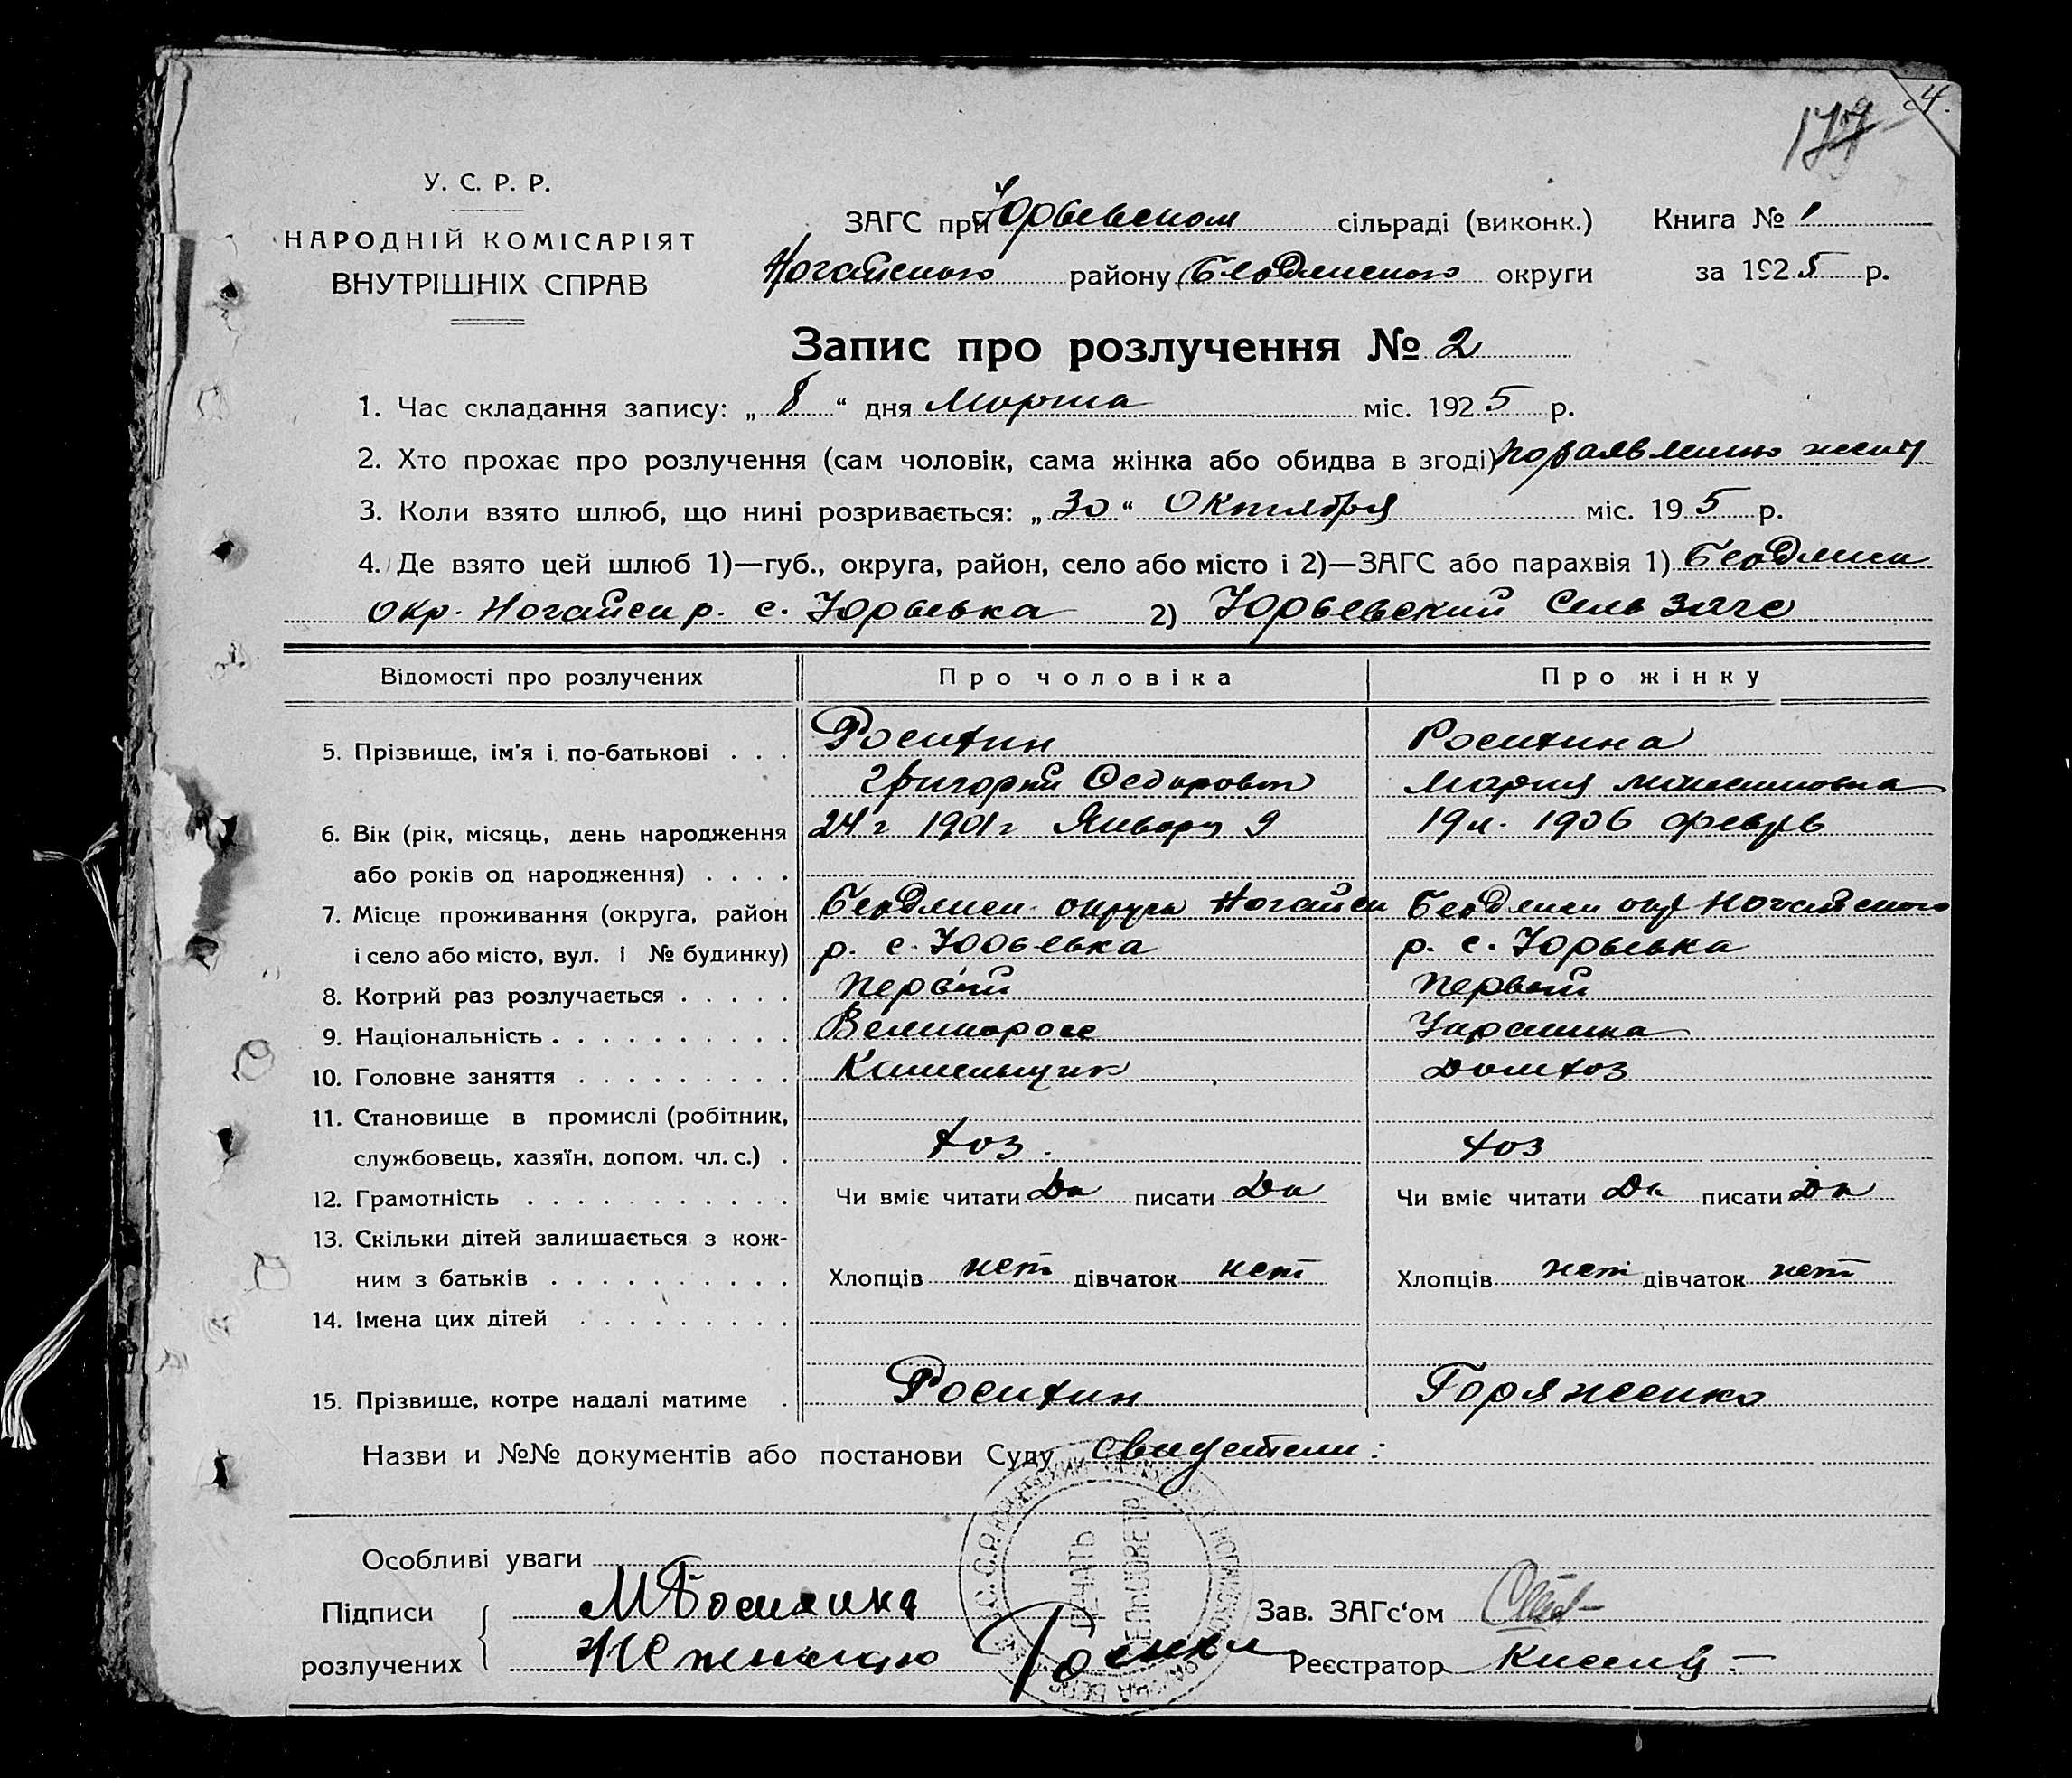 177 4.
У. С. Р. Р.
НАРОДНІЙ КОМІСАРІЯТ
ВНУТРІШНІХ СПРАВ
ЗАГС при Юрьевском сільраді (виконк.) Книга № 1
Ногайского району Бердянского округи за 1925 р.
Запис про розлучення № 2
1. Час складання запису: „ 8 “ дня Марта міс. 1925 р.
2. Хто прохає про розлучення (сам чоловік, сама жінка або обидва в згоді) по заявлению жены
3. Коли взято шлюб, що нині розривається: „ 30 “ Октября міс. 19 5 р.
4. Де взято цей шлюб 1)—губ., округа, район, село або місто і 2)—ЗАГС або парахвія 1) Бердянск
окр. Ногайск р. с. Юрьевка 2) Юрьевский Сельзагс
Відомості про розлучених Про чоловіка Про жінку
5. Прізвище, ім'я і по-батькові . . . Росихин Росихина
Григорий Федорович Мария
6. Вік (рік, місяць, день народження 24 г 1901 г Января 9 19 л. 1906 февр
або років од народження) . . . .
7. Місце проживання (округа, район Бердянск округа Ногайск Бердянск окр Ногайского
і село або місто, вул. і № будинку) р. с. Юрьевка р. с. Юрьевка
8. Котрий раз розлучається . . . . . первый первый
9. Національність . . . . . . . . . . Великоросс Украинка
10. Головне заняття . . . . . . . . . Каменьщик Домхоз
11. Становище в промислі (робітник,
службовець, хазяїн, допом. чл. с.) . хоз. хоз
12. Грамотність . . . . . . . . . . . Чи вміє читати Да писати Да Чи вміє читати Да писати Да
13. Скільки дітей залишається з кож-
ним з батьків . . . . . . . . . . Хлопців нет дівчаток нет Хлопців нет дівчаток нет
14. Імена цих дітей . . . . . . . . .
15. Прізвище, котре надалі матиме . Росихин Горяженко
Назви и №№ документів або постанови Суду свидетели:
ПЕЧАТЬ
СЕЛЬСОВЕТА
Особливі уваги
Підписи М Зав. ЗАГс'ом
розлучених Росихин Реєстратор